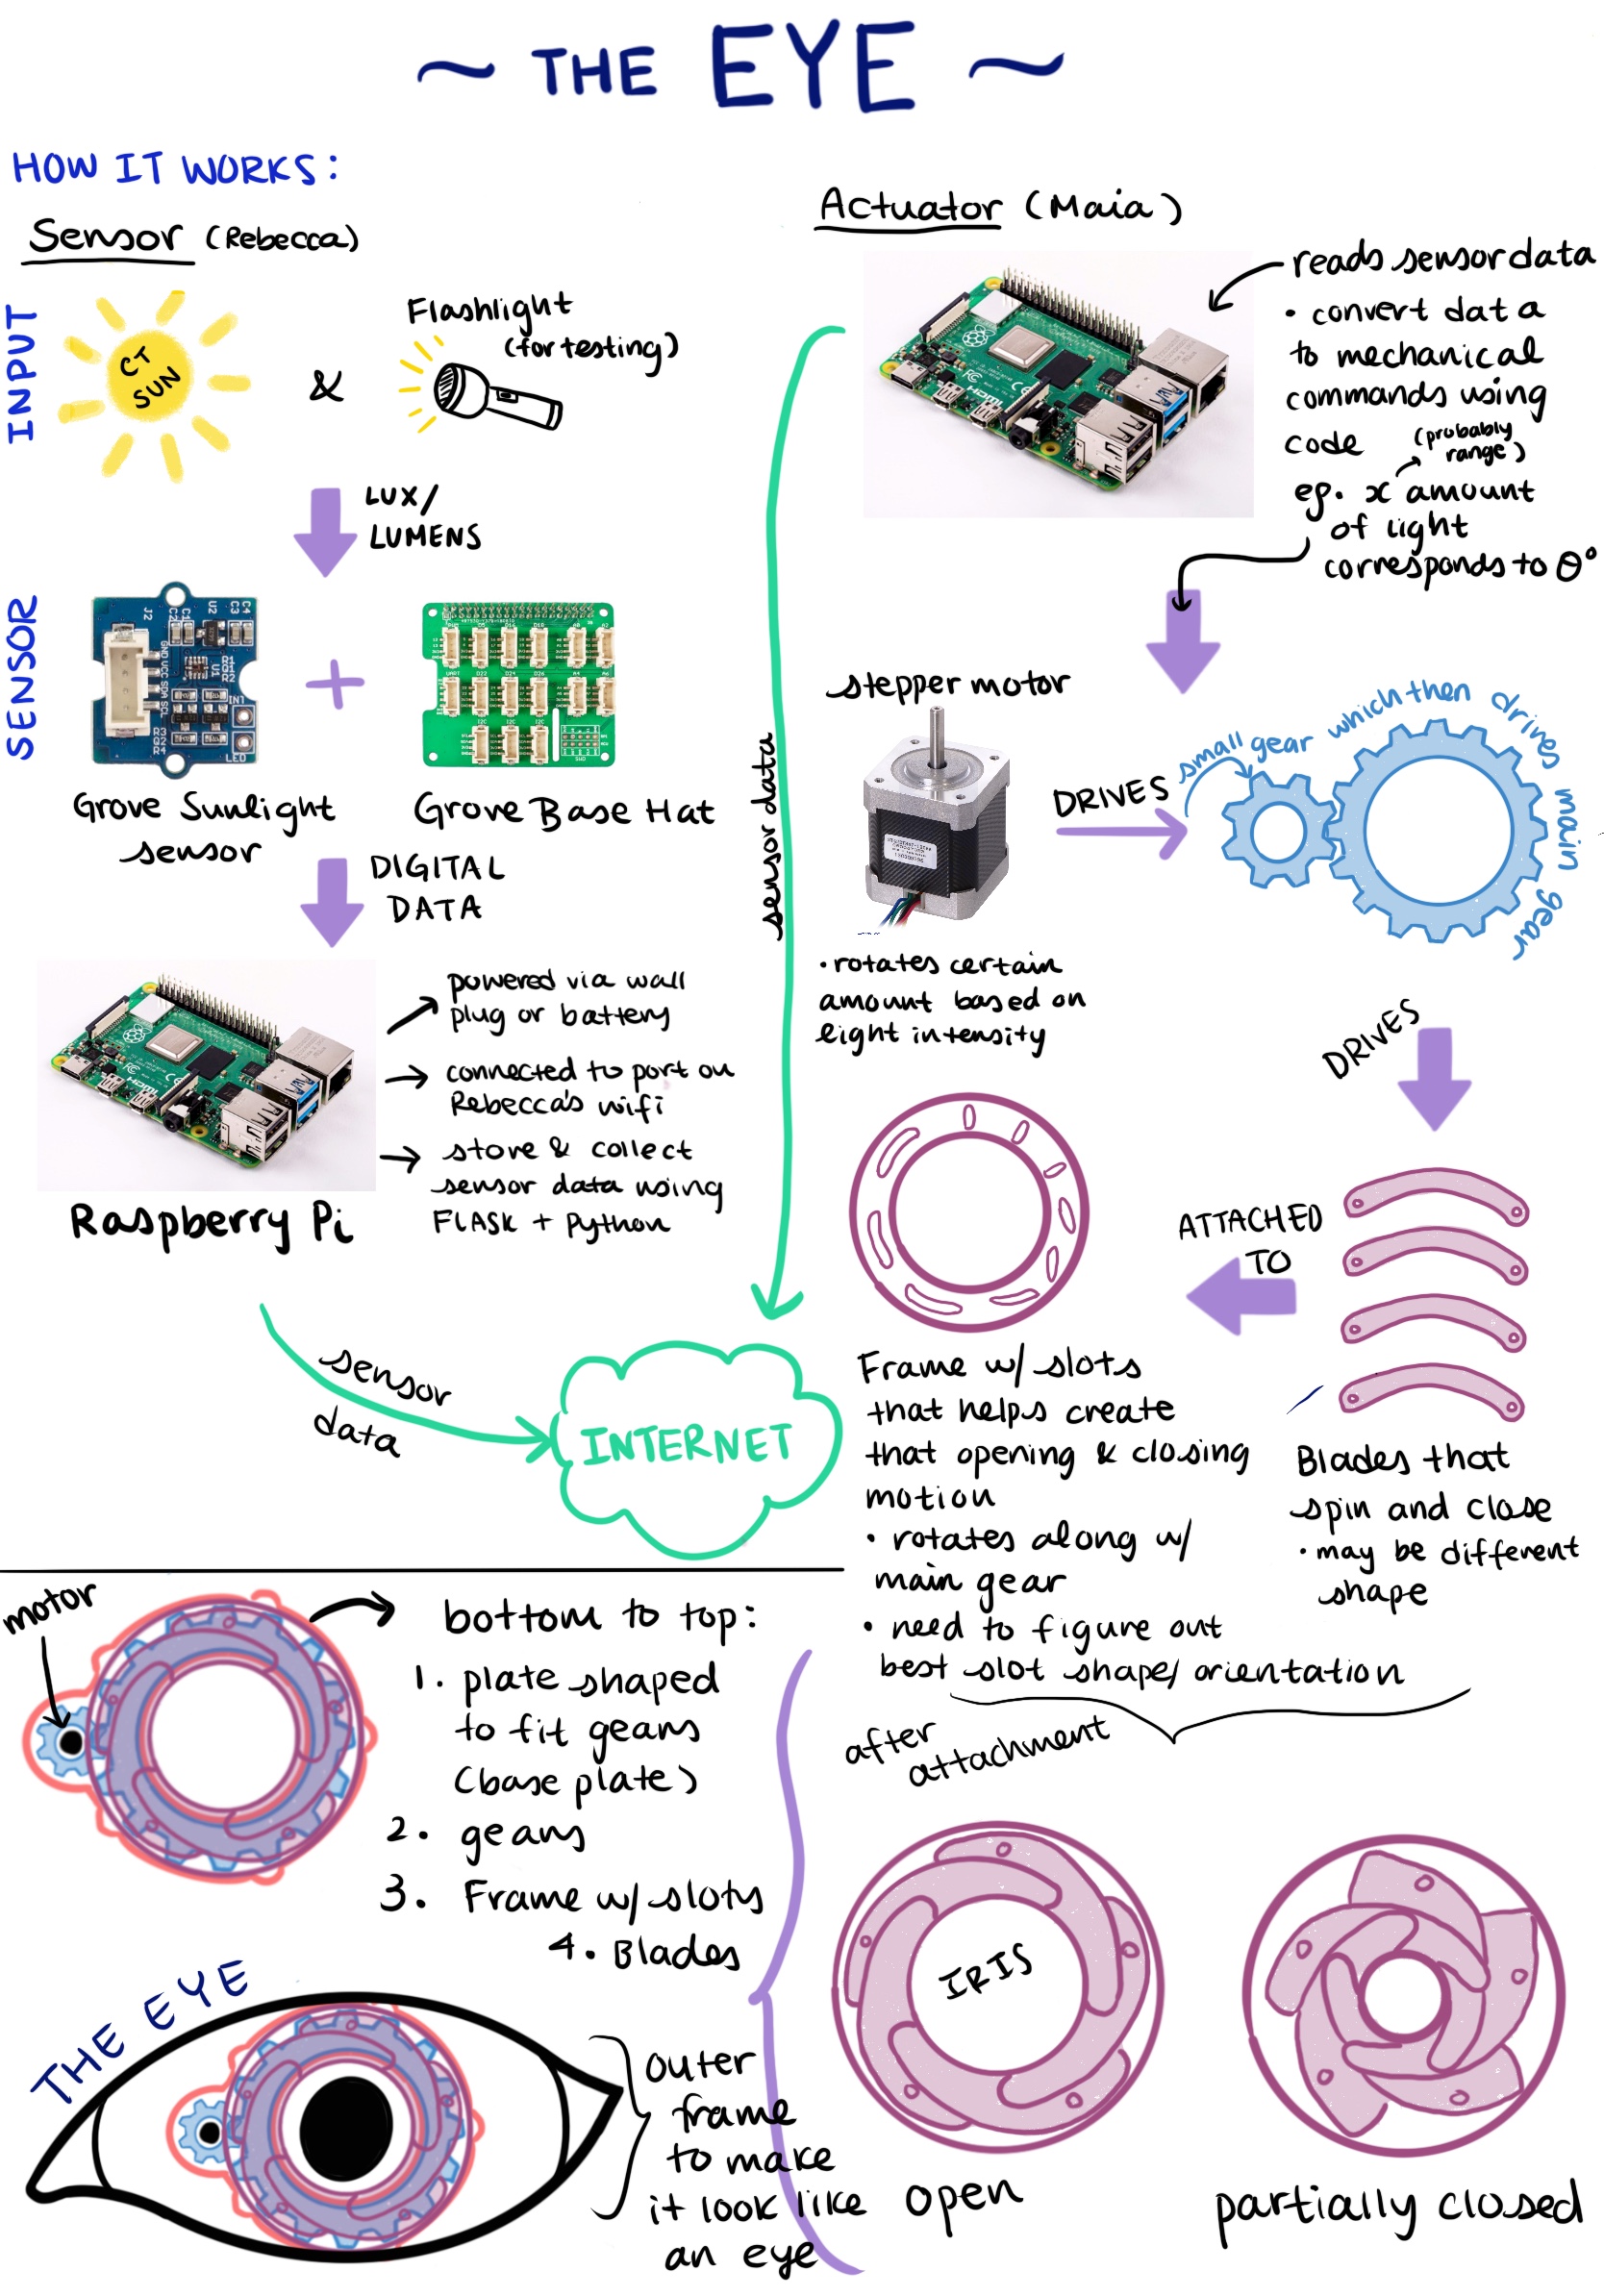 ~ THE EYE ~
HOW IT WORKS:
Sensor (Rebecca)
INPUT
CT
SUN
&
Flashlight
(for testing)
LUX/
LUMENS
SENSOR
+
Grove Sunlight
sensor
Grove Base Hat
DIGITAL
DATA
powered via wall
plug or battery
connected to port on
Rebecca's wifi
store & collect
sensor data using
FLASK + Python
Raspberry Pi
sensor
data
INTERNET
sensor data
Actuator (Maia)
reads sensor data
• convert data
to mechanical
commands using
code (probably
range)
eg. x amount
of light
corresponds to θ°
stepper motor
DRIVES
small gear which then drives main gear
• rotates certain
amount based on
light intensity
DRIVES
ATTACHED
TO
Frame w/ slots
that helps create
that opening & closing
motion
• rotates along w/
main gear
• need to figure out
best slot shape/ orientation
Blades that
spin and close
• may be different
shape
after
attachment
IRIS
open
partially closed
motor
bottom to top:
1. plate shaped
to fit gears
(base plate)
2. gears
3. Frame w/ slots
4. Blades
THE EYE
outer
frame
to make
it look like
an eye